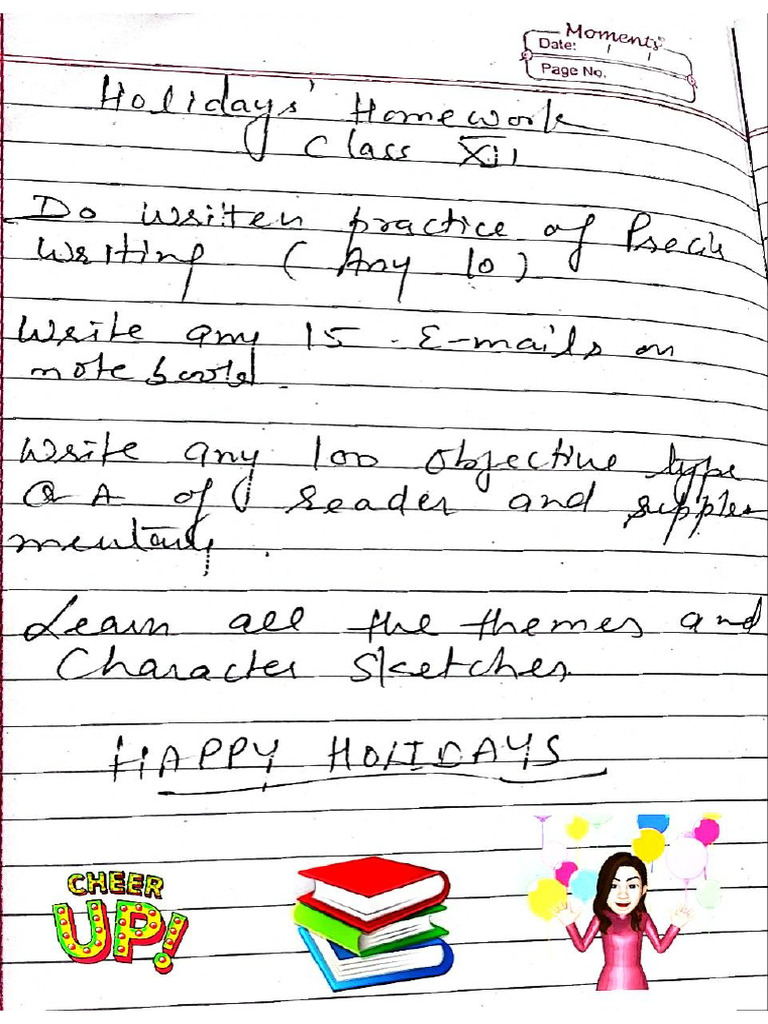 Moments
Date:
Page No.
Holidays' Homework
Class XII
Do wriiten practice of Precis
Writing (Any 10)
Write any 15 E-mails on
note book.
Write any 100 objective type
Q A of reader and supple
mentary.
Learn all the themes and
Character Sketches.
HAPPY HOLIDAYS
CHEER
UP!